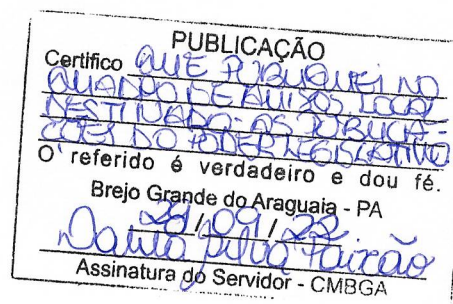 PUBLICAÇÃO
Certifico QUE PUBLIQUEI NO
QUANDO DE AVISOS LOCAL
DESTINADO-AS PUBLICA-
ÇÕES DO PODER LEGISLATIVO
O referido é verdadeiro e dou fé.
Brejo Grande do Araguaia - PA
/ 09 / 22
Paixão
Assinatura do Servidor - CMBGA